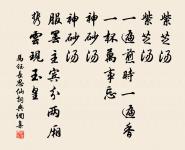 紫芝汤
紫芝汤
一遍煎时一遍香
一杯万事忘
神砂汤
神砂汤
服罢主宾分两厢
携云现玉皇
马钰长思仙词典调集